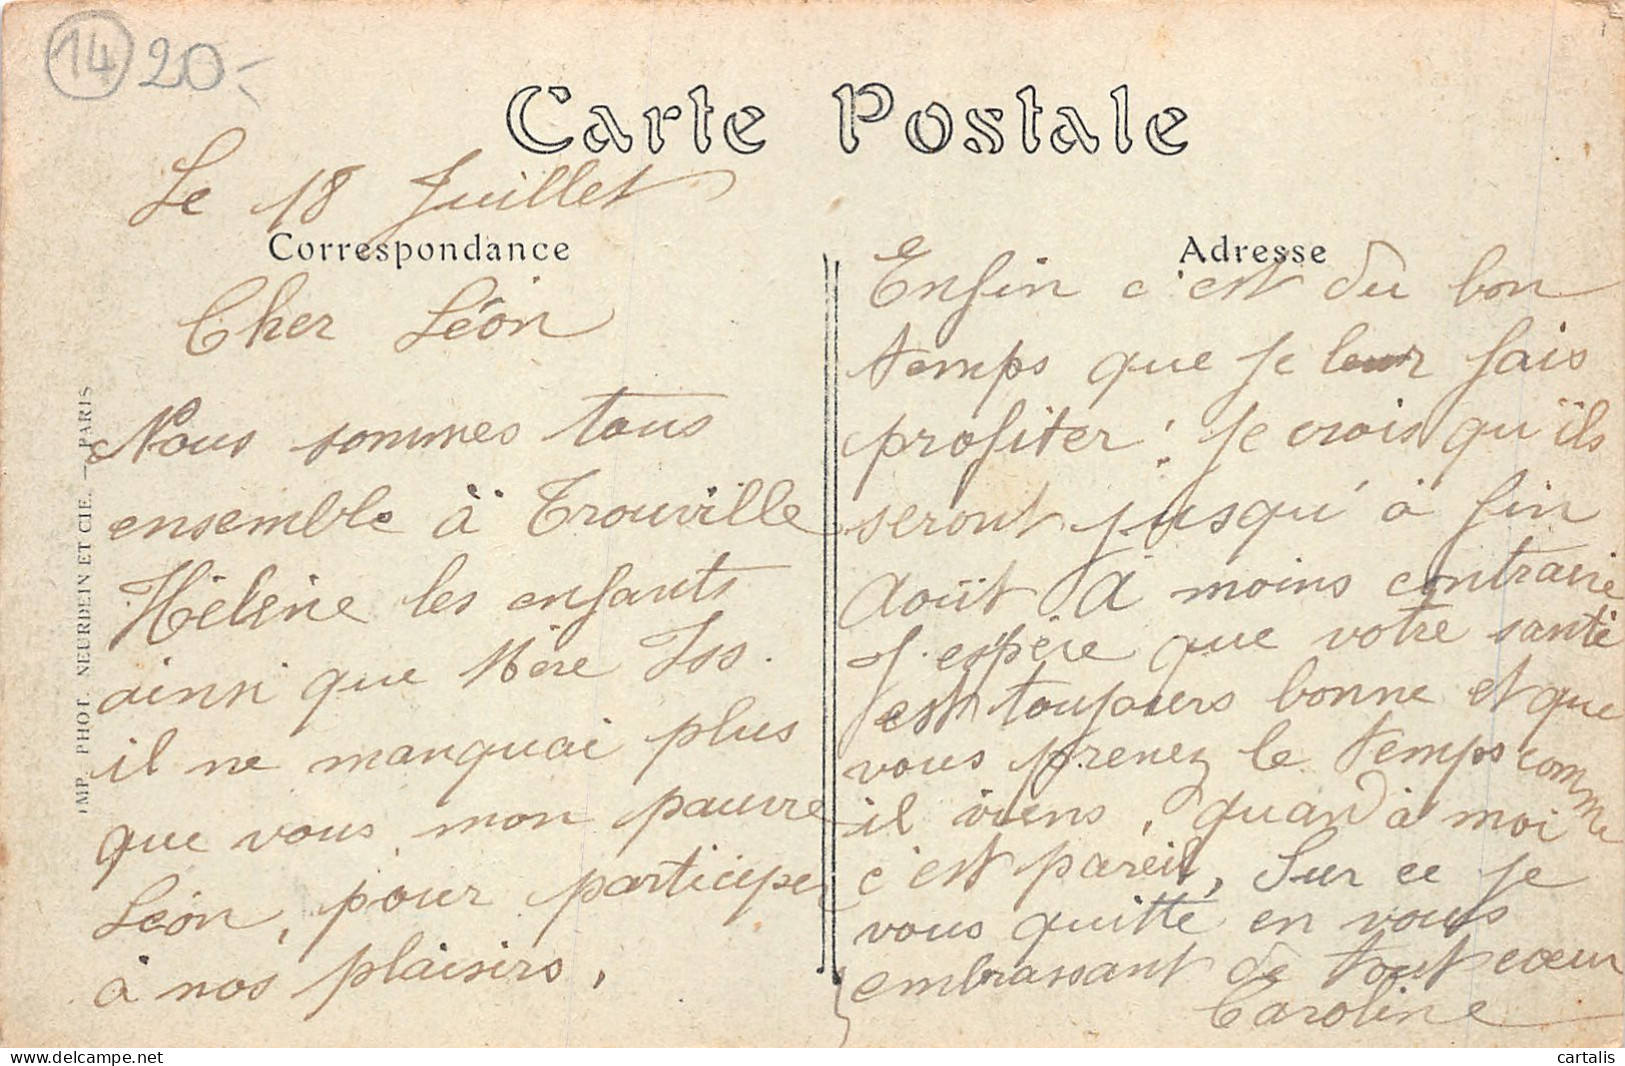 14 20-
Carte Postale
Le 18 Juillet
Correspondance
Cher Léon
Nous sommes tous
ensemble à Trouville
Hélène les enfants
ainsi que Mère Iss.
il ne manquai plus
que vous mon pauvre
Léon, pour participer
à nos plaisirs,
IMP. PHOT. NEURDEIN ET CIE. — PARIS
Adresse
Enfin c'est du bon
temps que je leur fais
profiter; Je crois qu'ils
seront jusqu'à fin
Août à moins contraire
J'espère que votre santé
est toujours bonne et que
vous prenez le temps comme
il viens, quand à moi
c'est pareil, Sur ce je
vous quitte en vous
embrassant de tout coeur
Caroline
cartalis